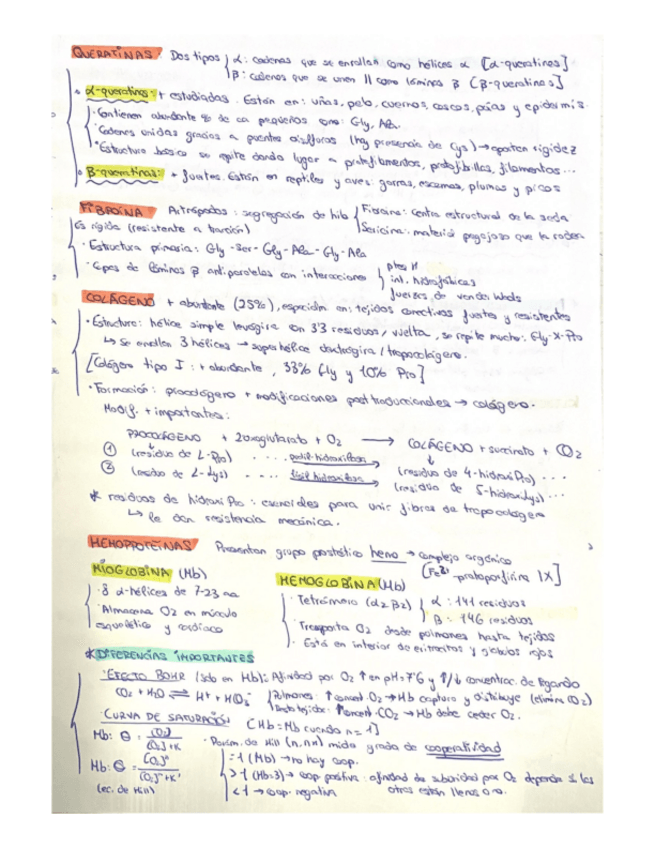 QUERATINAS: Dos tipos α: cadenas que se enrollan como hélices α [α-queratinas]
β: cadenas que se unen || como láminas β [β-queratinas]
α-queratinas: + estudiadas. Están en: uñas, pelo, cuernos, cascos, púas y epidermis.
Contienen abundante % de aa pequeños como: Gly, Ala.
Cadenas unidas gracias a puentes disulfuro (hay presencia de Cys) → aportan rigidez
Estructura básica se repite dando lugar a protofilamentos, protofibrillas, filamentos...
β-queratinas: + fuertes. Están en reptiles y aves: garras, escamas, plumas y picos
FIBROÍNA Artrópodos: segregación de hilo Fibroína: centro estructural de la seda
Es rígida (resistente a tracción) Sericina: material pegajoso que la rodea
Estructura primaria: Gly-Ser-Gly-Ala-Gly-Ala
Capas de láminas β antiparalelas con interacciones ptes H
int. hidrofóbicas
fuerzas de van der Waals
COLÁGENO + abundante (25%), especialm en: tejidos conectivos fuertes y resistentes
Estructura: hélice simple levógira con 3'3 residuos/vuelta, se repite mucho: Gly-X-Pro
↳ Se enrollan 3 hélices → superhélice dextrógira/tropocolágeno.
[Colágeno tipo I: + abundante, 33% Gly y 10% Pro]
Formación: procolágeno + modificaciones post traduccionales → colágeno.
Modif. + importantes:
PROCOLÁGENO + 2oxoglutarato + O2 → COLÁGENO + succinato + CO2
① (residuo de L-Pro) .... prolil-hidroxilasa (residuo de 4-hidroxiPro)...
② (residuo de L-Lys) .... lisil hidroxilasa (residuo de 5-hidroxiLys)...
* residuos de hidroxiPro: esenciales para unir fibras de tropocolágeno
↳ le dan resistencia mecánica.
HEMOPROTEÍNAS Presentan grupo prostético hemo → complejo orgánico
[Fe2+-protoporfirina IX]
MIOGLOBINA (Mb)
8 α-hélices de 7-23 aa
Almacena O2 en músculo
esquelético y cardíaco
HEMOGLOBINA (Hb)
Tetrámero (α2β2) α: 141 residuos
β: 146 residuos
Transporta O2 desde pulmones hasta tejidos
Está en interior de eritrocitos y glóbulos rojos
* DIFERENCIAS IMPORTANTES
EFECTO BOHR (solo en Hb): Afinidad por O2 ↑ en pH=7'6 y ↑/↓ concentrac. de ligando
CO2 + H2O ⇌ H+ + HCO3- Pulmones: ↑concent. O2 → Hb captura y distribuye (elimina CO2)
Resto tejidos: ↑concent. CO2 → Hb debe ceder O2.
CURVA DE SATURACIÓN [Hb=Mb cuando n=1]
Mb: θ = [O2] / [O2]+K
Parám. de Hill (n, nH) mide grado de cooperatividad
Hb: θ = [O2]n / [O2]n+K'
(ec. de Hill)
=1 (Mb) → no hay coop.
>1 (Hb=3) → coop. positiva: afinidad de subunidad por O2 depende si las
otras están llenas o no.
<1 → coop. negativa